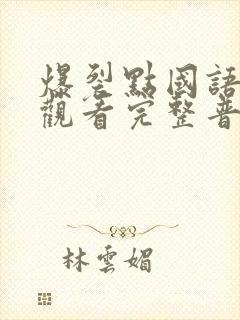 爆裂點國語
觀看完整普
林雲媚